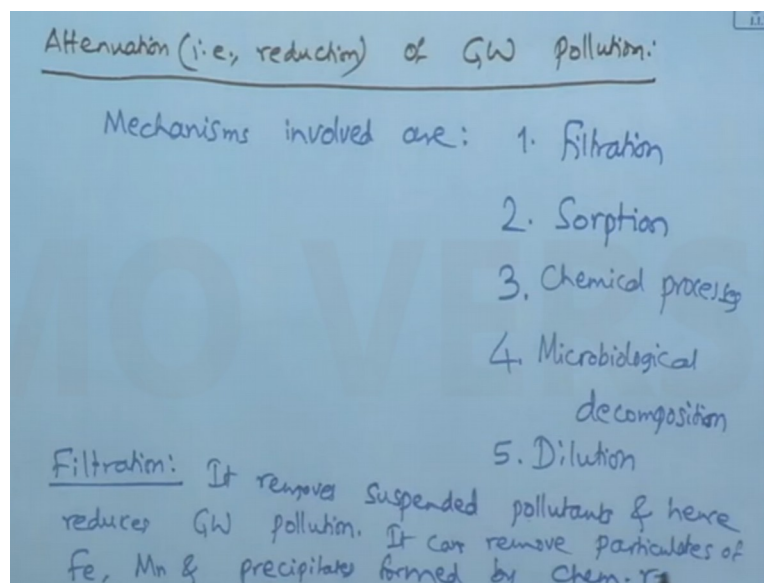 Attenuation (i.e., reduction) of GW pollution:
Mechanisms involved are: 1. Filtration
2. Sorption
3. Chemical processes
4. Microbiological
decomposition
5. Dilution
Filtration: It removes suspended pollutants & hence
reduces GW pollution. It can remove particulates of
Fe, Mn & precipitates formed by chem.